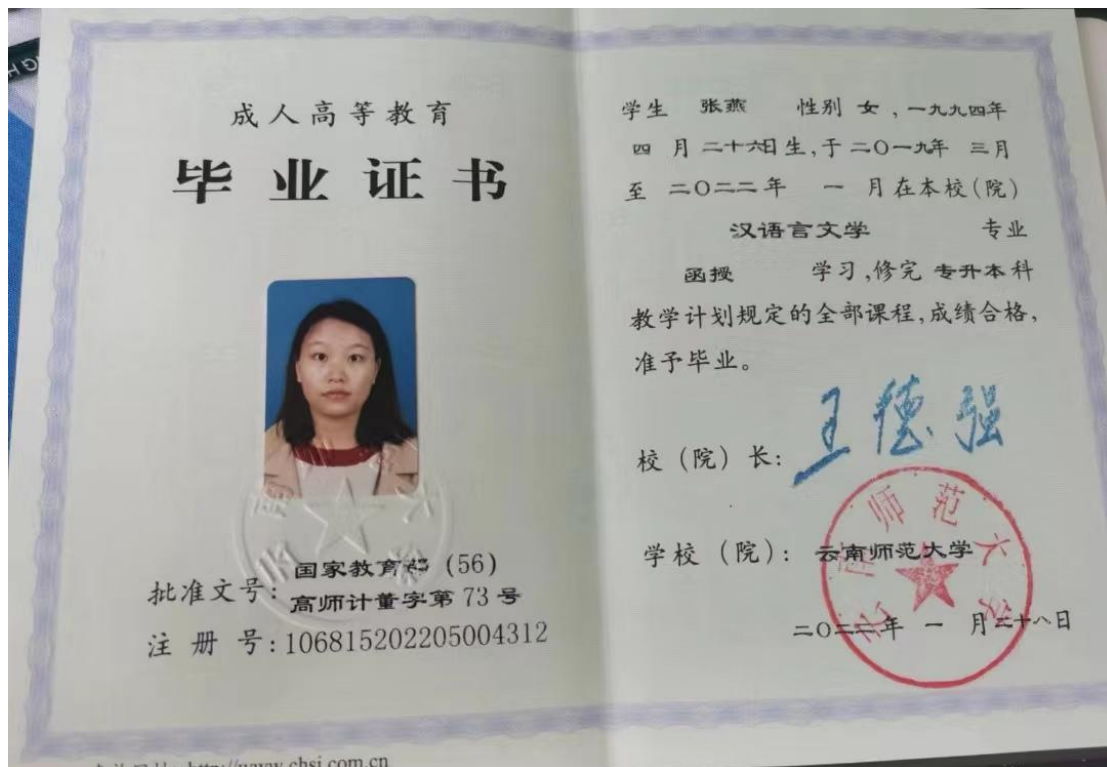 成人高等教育
毕业证书
批准文号：国家教育部（56）
高师计董字第 73 号
注 册 号：106815202205004312
http://www.chsi.com.cn
学生 张燕 性别 女，一九九四年
四 月 二十六日生，于 二〇一九年 三月
至 二〇二二年 一 月在本校（院）
汉语言文学 专业
函授 学习，修完 专升本科
教学计划规定的全部课程，成绩合格，
准予毕业。
校（院）长：王德强
学校（院）：云南师范大学
二〇二二年 一 月二十八日